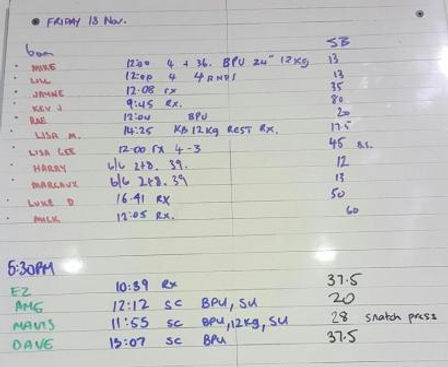 FRIDAY 13 Nov.
SB
6am
MIKE 12:00 4 + 36. BPU 24" 12Kg 13
12:00 4 13
JAYNE 12:08 rx 35
KEV J 9:45 Rx. 80
RAE 12:04 BPU 20
LISA M. 14:25 KB 12Kg REST RX. 17.5
LISA GEE 12:00 rx 4-3 45
HARRY 6/6 2+8. 39. 12
MARGAUX 6/6 2+8. 39 13
LUKE D 16:41 RX 50
12:05 RX. 60
5:30PM
EZ 10:39 Rx 37.5
AMG 12:12 SC BPU, SU 20
MAVIS 11:55 SC BPU, 12Kg, SU 28 snatch press
DAVE 13:07 SC BPU 37.5